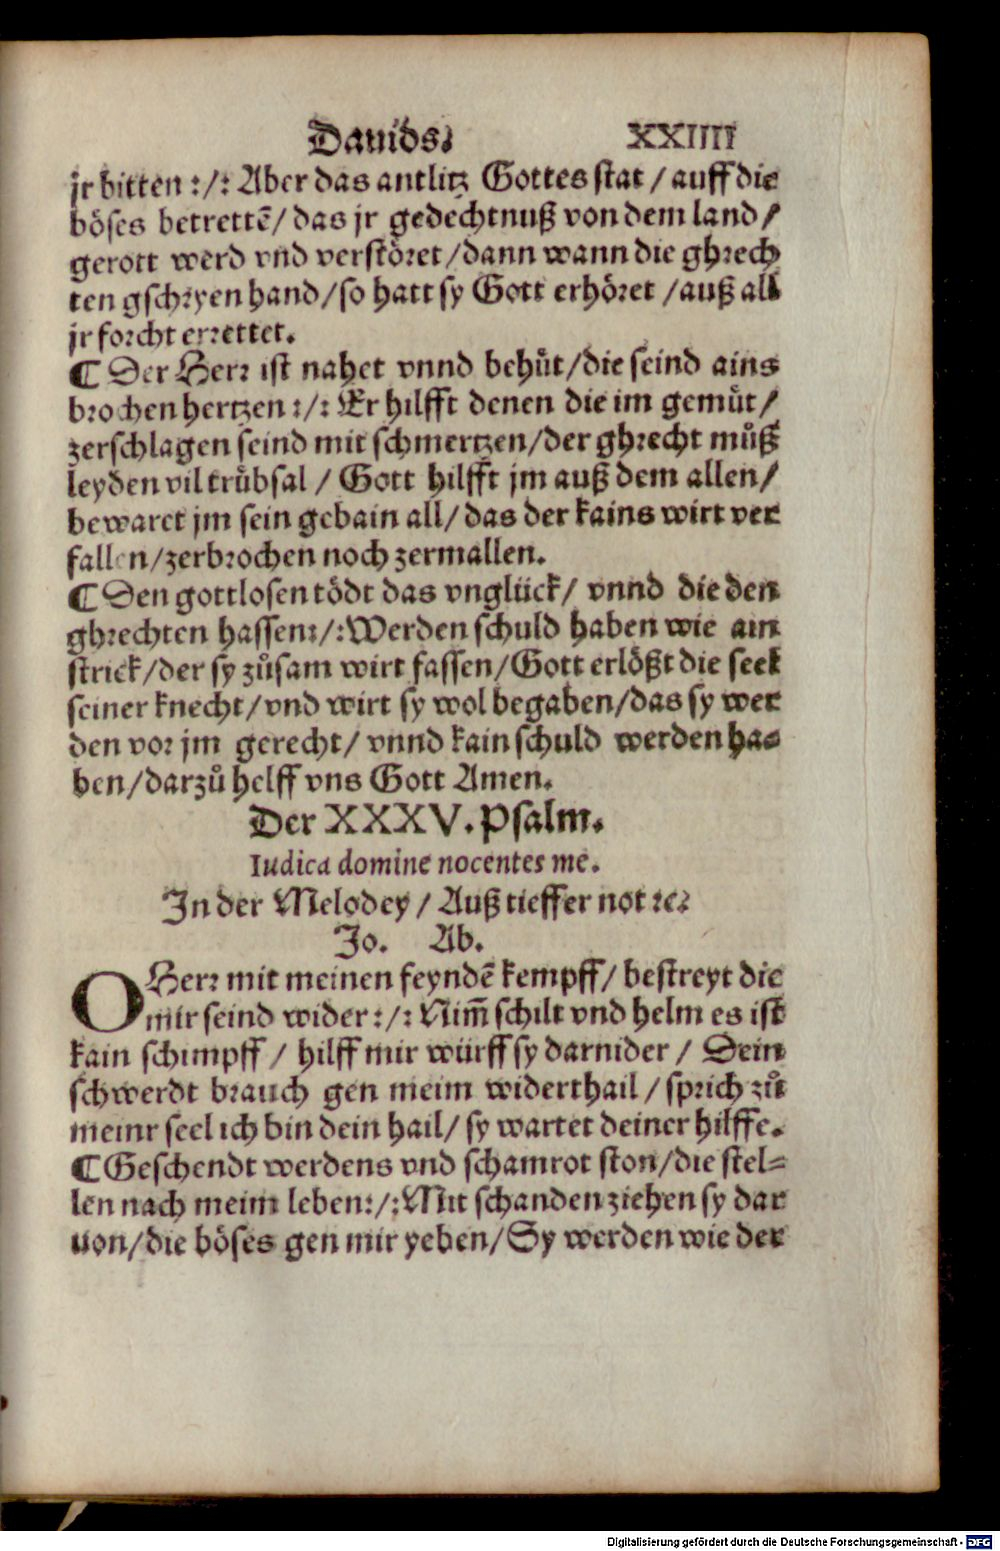 Dauids. XXIIII
jr bitten :/: Aber das antlitz Gottes stat / auff die
böses betrettē / das jr gedechtnuß von dem land /
gerott werd vnd verstöret / dann wann die ghrech
ten gschryen hand / so hatt sy Gott erhöret / auß all
jr forcht errettet.
¶ Der Herr ist nahet vnnd behuͤt / die seind ains
brochen hertzen :/: Er hilfft denen die im gemuͤt /
zerschlagen seind mit schmertzen / der ghrecht muͦß
leyden vil truͤbsal / Gott hilfft jm auß dem allen /
bewaret jm sein gebain all / das der kains wirt ver
fallen / zerbrochen noch zermallen.
¶ Den gottlosen tödt das vnglück / vnnd die den
ghrechten hassen :/: Werden schuld haben wie ain
strick / der sy zuͦsam wirt fassen / Gott erlößt die seel
seiner knecht / vnd wirt sy wol begaben / das sy wer
den vor jm gerecht / vnnd kain schuld werden ha-
ben / darzuͦ helff vns Gott Amen.
Der XXXV. Psalm.
Iudica domine nocentes me.
In der Melodey / Auß tieffer not ꝛc.
Jo. Ab.
O Herr mit meinen feyndē kempff / bestreyt die
mir seind wider :/: Nim̄ schilt vnd helm es ist
kain schimpff / hilff mir würff sy darnider / Dein
schwerdt brauch gen meim widerthail / sprich zuͦ
meinr seel ich bin dein hail / sy wartet deiner hilffe.
¶ Geschendt werdens vnd schamrot ston / die stel-
len nach meim leben :/: Mit schanden ziehen sy dar
uon / die böses gen mir yeben / Sy werden wie der
Digitalisierung gefördert durch die Deutsche Forschungsgemeinschaft - DFG